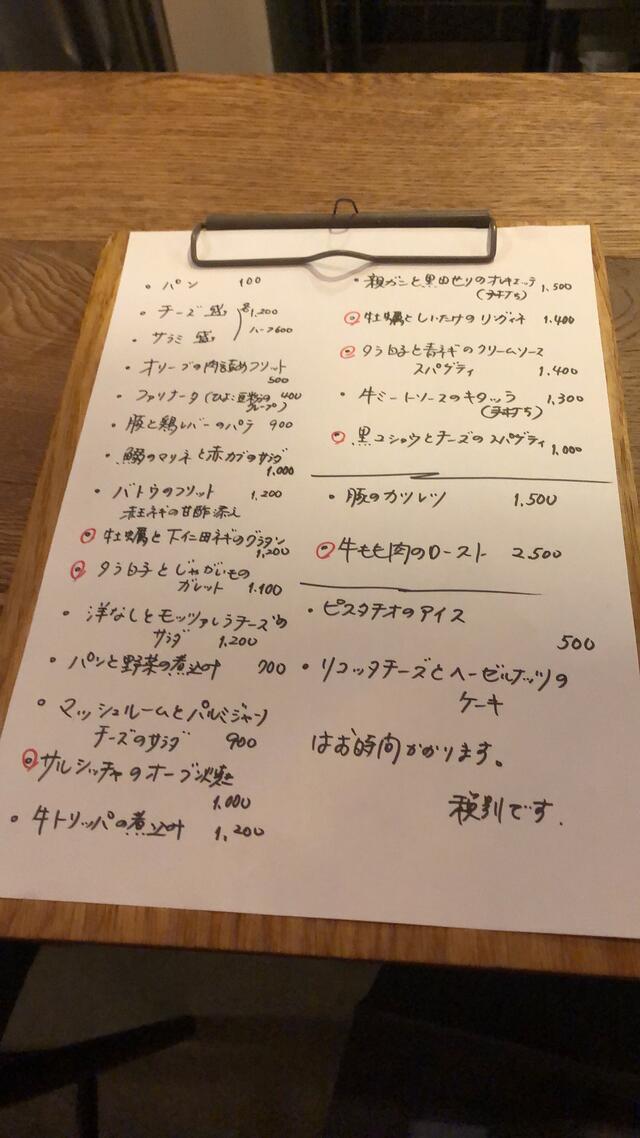 ・パン 100
・チーズ盛 各1,200
・サラミ盛 ハーフ600
・オリーブの肉詰めフリット
500
・ファリナータ(ひよこ豆粉の 400
クレープ)
・豚と鶏レバーのパテ 900
・鰯のマリネと赤カブのサラダ
1,000
・バトウのフリット 1,200
玉ネギの甘酢添え
牡蠣と下仁田ネギのグラタン
1,200
タラ白子とじゃがいもの
ガレット 1,100
・洋なしとモッツァレラチーズの
サラダ 1,200
・パンと野菜の煮込み 700
・マッシュルームとパルミジャーノ
チーズのサラダ 900
サルシッチャのオーブン焼き
1,000
・牛トリッパの煮込み 1,200
・親ガニと黒田せりのオレキエッテ
(手打ち) 1,500
牡蠣としいたけのリングイネ 1,400
タラ白子と青ネギのクリームソース
スパゲティ 1,400
・牛ミートソースのキタッラ 1,300
(手打ち)
黒コショウとチーズのスパゲティ 1,000
・豚のカツレツ 1,500
牛もも肉のロースト 2,500
・ピスタチオのアイス
500
・リコッタチーズとヘーゼルナッツの
ケーキ
はお時間かかります。
税別です.